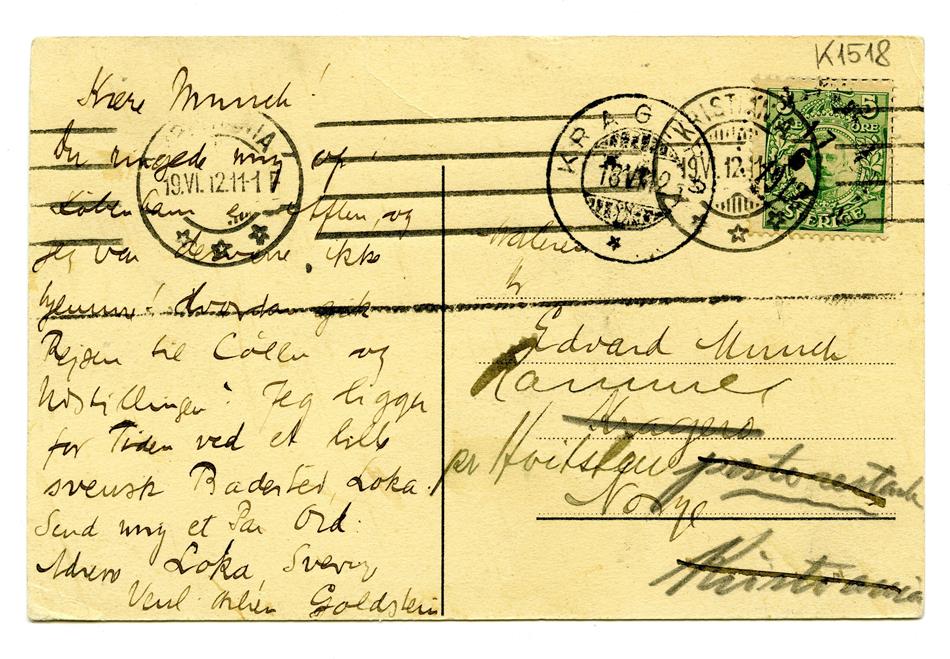 K1518
Kære Munch!
Du ringede mig op i
København en Aften, og
jeg var desværre ikke
hjemme! Hvordan gik
Rejsen til Cölln og
Udstillingen? Jeg ligger
for Tiden ved et lille
svensk Badested, Loka.
Send mig et Par Ord.
Adress Loka, Sverig
Venl. Hilsen Goldstein
KRAGERØ
18 VI 12
KRISTIANIA
19.VI.12.11-1
KRISTIANIA
19.VI.12.11-1 E
5 ÖRE
SVERIGE
Maleren
Hr
Edvard Munch
Ramme
Kragerø
pr Hvitsten
poste restante
Norge
Kristiania